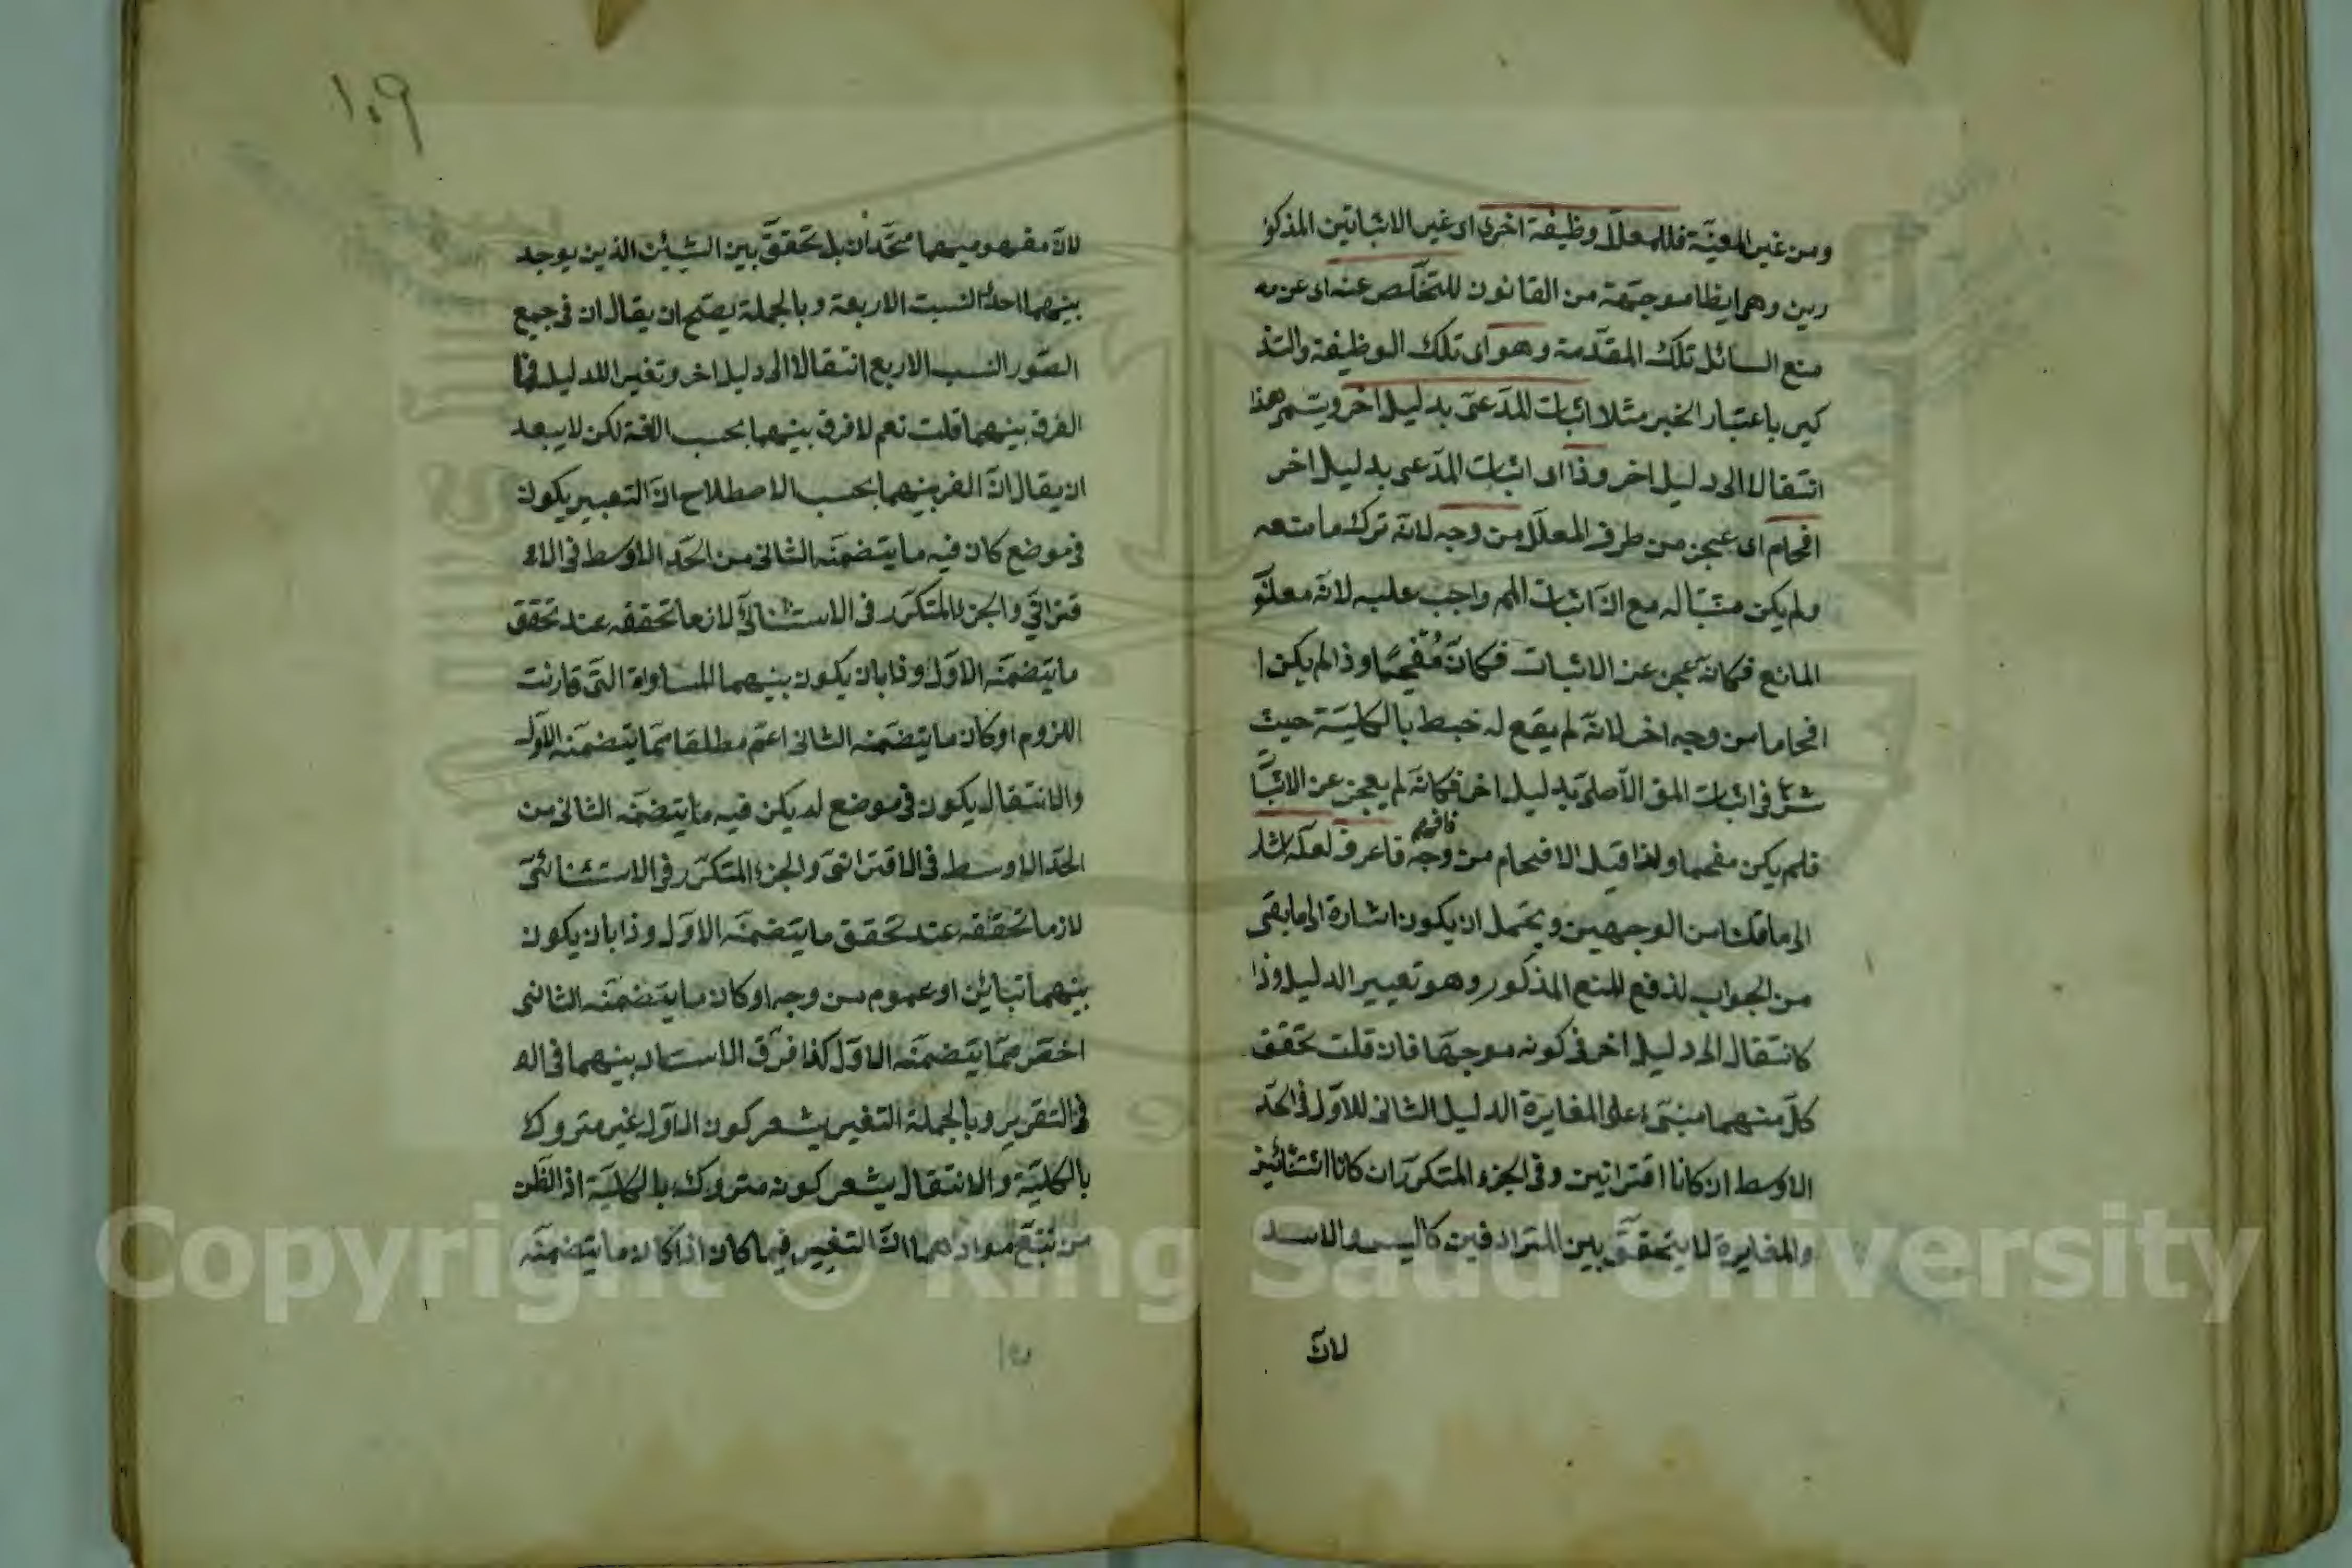 ومن غير المعيّنة فللمعلل وظيفة اخرى اى غير الاثباتين المذكو
رين وهى ايظا موجّهة من القانون للتخلّص عنه اى عن
منع السائل تلك المقدّمة وهو اى تلك الوظيفة والتذ
كير باعتبار الخبر مثلا اثبات المدّعى بدليل اخر ويسمّى هذا
انتقالا الى دليل اخر وذا اى اثبات المدّعى بدليل اخر
افحام اى عجز من طرف المعلّل من وجه لانّه ترك ما منعه
ولم يكن مثبتا له مع انّ اثبات الم واجب عليه لانّه
المانع فكانّه عجز عن الاثبات فكانّ مُفحَمًا وذا لم يكن ا
افحاما من وجه اخر لانّه لم يقع له خبط بالكليّة حيث
شرع فى اثبات المق الاصلىّ بدليل اخر فكانّه لم يعجز عن الاثبا
فلم يكن مفحما ولذا قيل الافحام من وجه فاعرف لعلّه اشار
فافهم
الى ما قلنا من الوجهين ويحتمل ان يكون اشارة الى ما بقى
من الجواب لدفع المنع المذكور وهو تغيير الدليل وذا
كانتقال الى دليل اخر فى كونه موجّها فان قلت تحقق
كلّ منهما مبنىّ على المغايرة الدليل الثانى للاوّل فى الحدّ
الاوسط ان كانا اقترانيين وفى الجزء المتكرّر ان كانا
والمغايرة لا يتحقّق بين المترادفين كاليس والاسد
لانّ
١٠٩
لانّ مفهوميهما متّحدان بل تحقّق بين الشيئين الذين يوجد
بينهما احد النسبت الاربعة وبالجملة يصحّ ان يقال ان فى جميع
الصّور النسب الاربع انتقالا الى دليل اخر وتغير الدليل فما
الفرق بينهما قلت نعم لا فرق بينهما بحسب اللغة لكن لا يبعد
ان يقال انّ الفر بينهما بحسب الاصطلاح انّ التعبير يكون
فى موضع كان فيه ما يتضمّنه الثانى من الحدّ الاوسط فى الا
قترانىّ والجزء المتكرّر فى الاستثنائىّ لازما تحققه عند تحقق
ما يتضمّنه الاوّل وذا بان يكون بينهما المساواة التى قارنت
اللزوم او كان ما يتضمّنه الثانى اعمّ مطلقا ممّا يتضمّنه الاوّل
والانتقال يكون فى موضع لم يكن فيه ما يتضمّنه الثانى من
الحدّ الاوسط فى الاقترانىّ والجزء المتكرّر فى الاستثنائىّ
لازما تحققه عند تحقق ما يتضمّنه الاوّل وذا بان يكون
بينهما تباين او عموم من وجه او كان ما يتضمّنه الثانى
اخصّ ممّا يتضمّنه الاوّل كذا فرّق الاستاد بينهما
فى التقرير وبالجملة التغير يشعر كون الاوّل غير متروك
بالكليّة والانتقال يشعر كونه متروك بالكليّة اذ الظن
من تتبّع موادهما انّ التغير فيما كان اذا كان ما يتضمّنه
Copyright © King Saud University